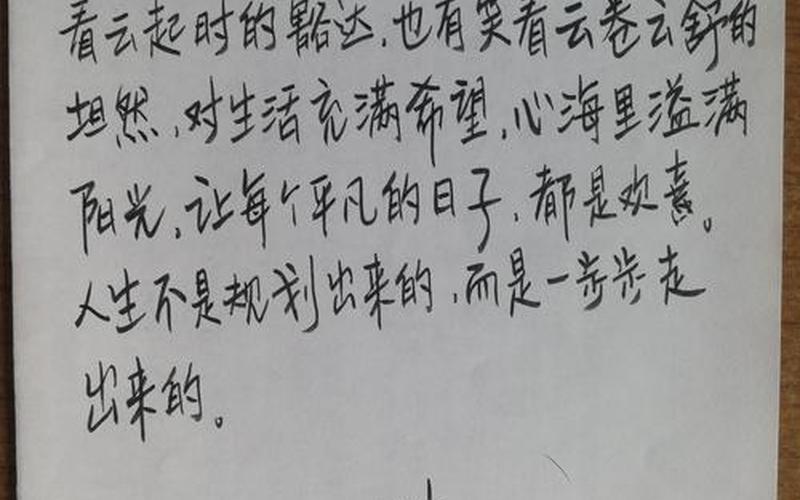 看云起时的豁达,也有笑看云卷云舒的
坦然,对生活充满希望,心海里溢满
阳光,让每个平凡的日子,都是欢喜。
人生不是规划出来的,而是一步步走
出来的。